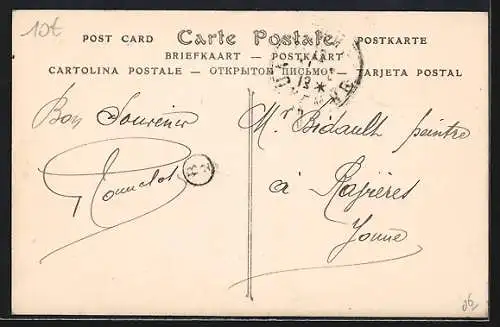 10t
POST CARD Carte Postale POSTKARTE
BRIEFKAART — POSTKAART
CARTOLINA POSTALE — ОТКРЫТОЕ ПИСЬМО — TARJETA POSTAL
Bon Souvenir
Mr Bidault peintre
à Ravières
Yonne
06